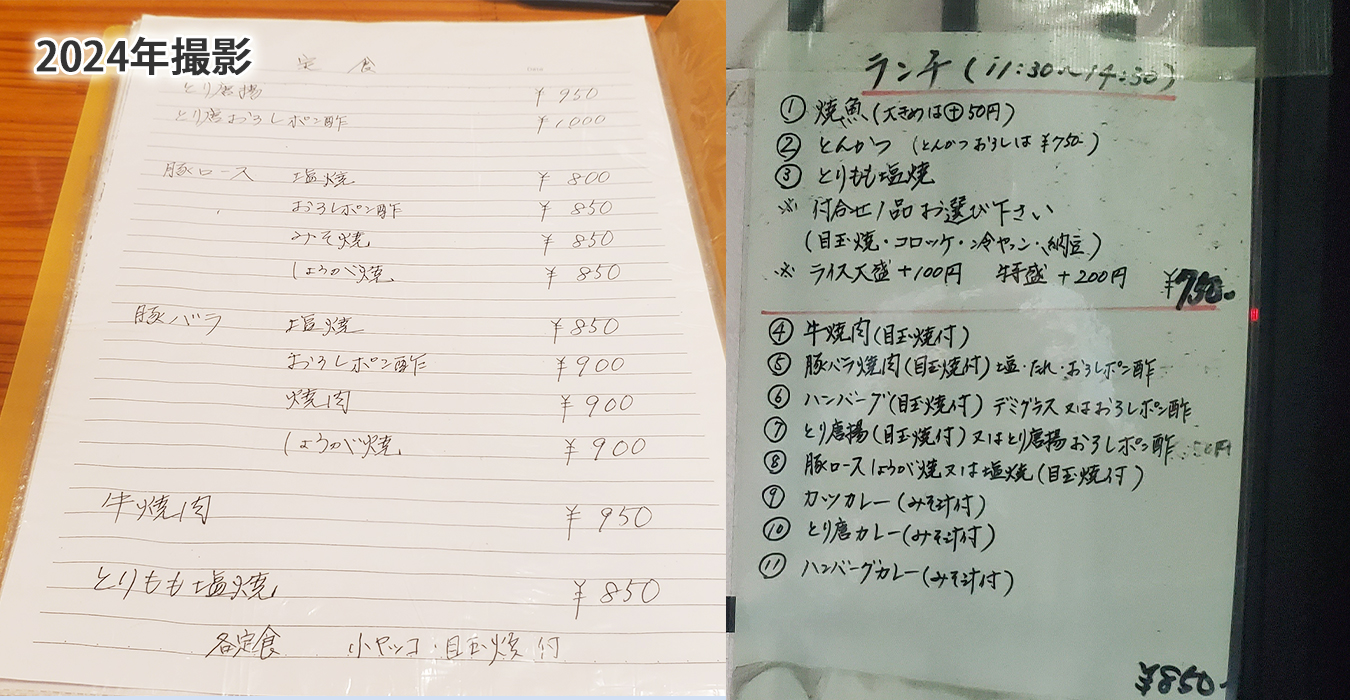 2024年撮影
定食
とり唐揚 ¥950
とり唐おろしポン酢 ¥1000
豚ロース 塩焼 ¥800
おろしポン酢 ¥850
みそ焼 ¥850
しょうが焼 ¥850
豚バラ 塩焼 ¥850
おろしポン酢 ¥900
焼肉 ¥900
しょうが焼 ¥900
牛焼肉 ¥950
とりもも塩焼 ¥850
各定食 小ヤッコ・目玉焼付
ランチ(11:30~14:30)
① 焼魚(大きめは⊕50円)
② とんかつ (とんかつおろしは ¥750-)
③ とりもも塩焼
※ 付合せ1品お選び下さい
(目玉焼・コロッケ・冷ヤッコ・納豆)
※ ライス大盛+100円 特盛+200円 ¥750-
④ 牛焼肉(目玉焼付)
⑤ 豚バラ焼肉(目玉焼付)塩・たれ・おろしポン酢
⑥ ハンバーグ(目玉焼付) デミグラス又はおろしポン酢
⑦ とり唐揚(目玉焼付)又はとり唐揚おろしポン酢
⑧ 豚ロースしょうが焼又は塩焼(目玉焼付)
⑨ カツカレー(みそ汁付)
⑩ とり唐カレー(みそ汁付)
⑪ ハンバーグカレー(みそ汁付)
¥850-